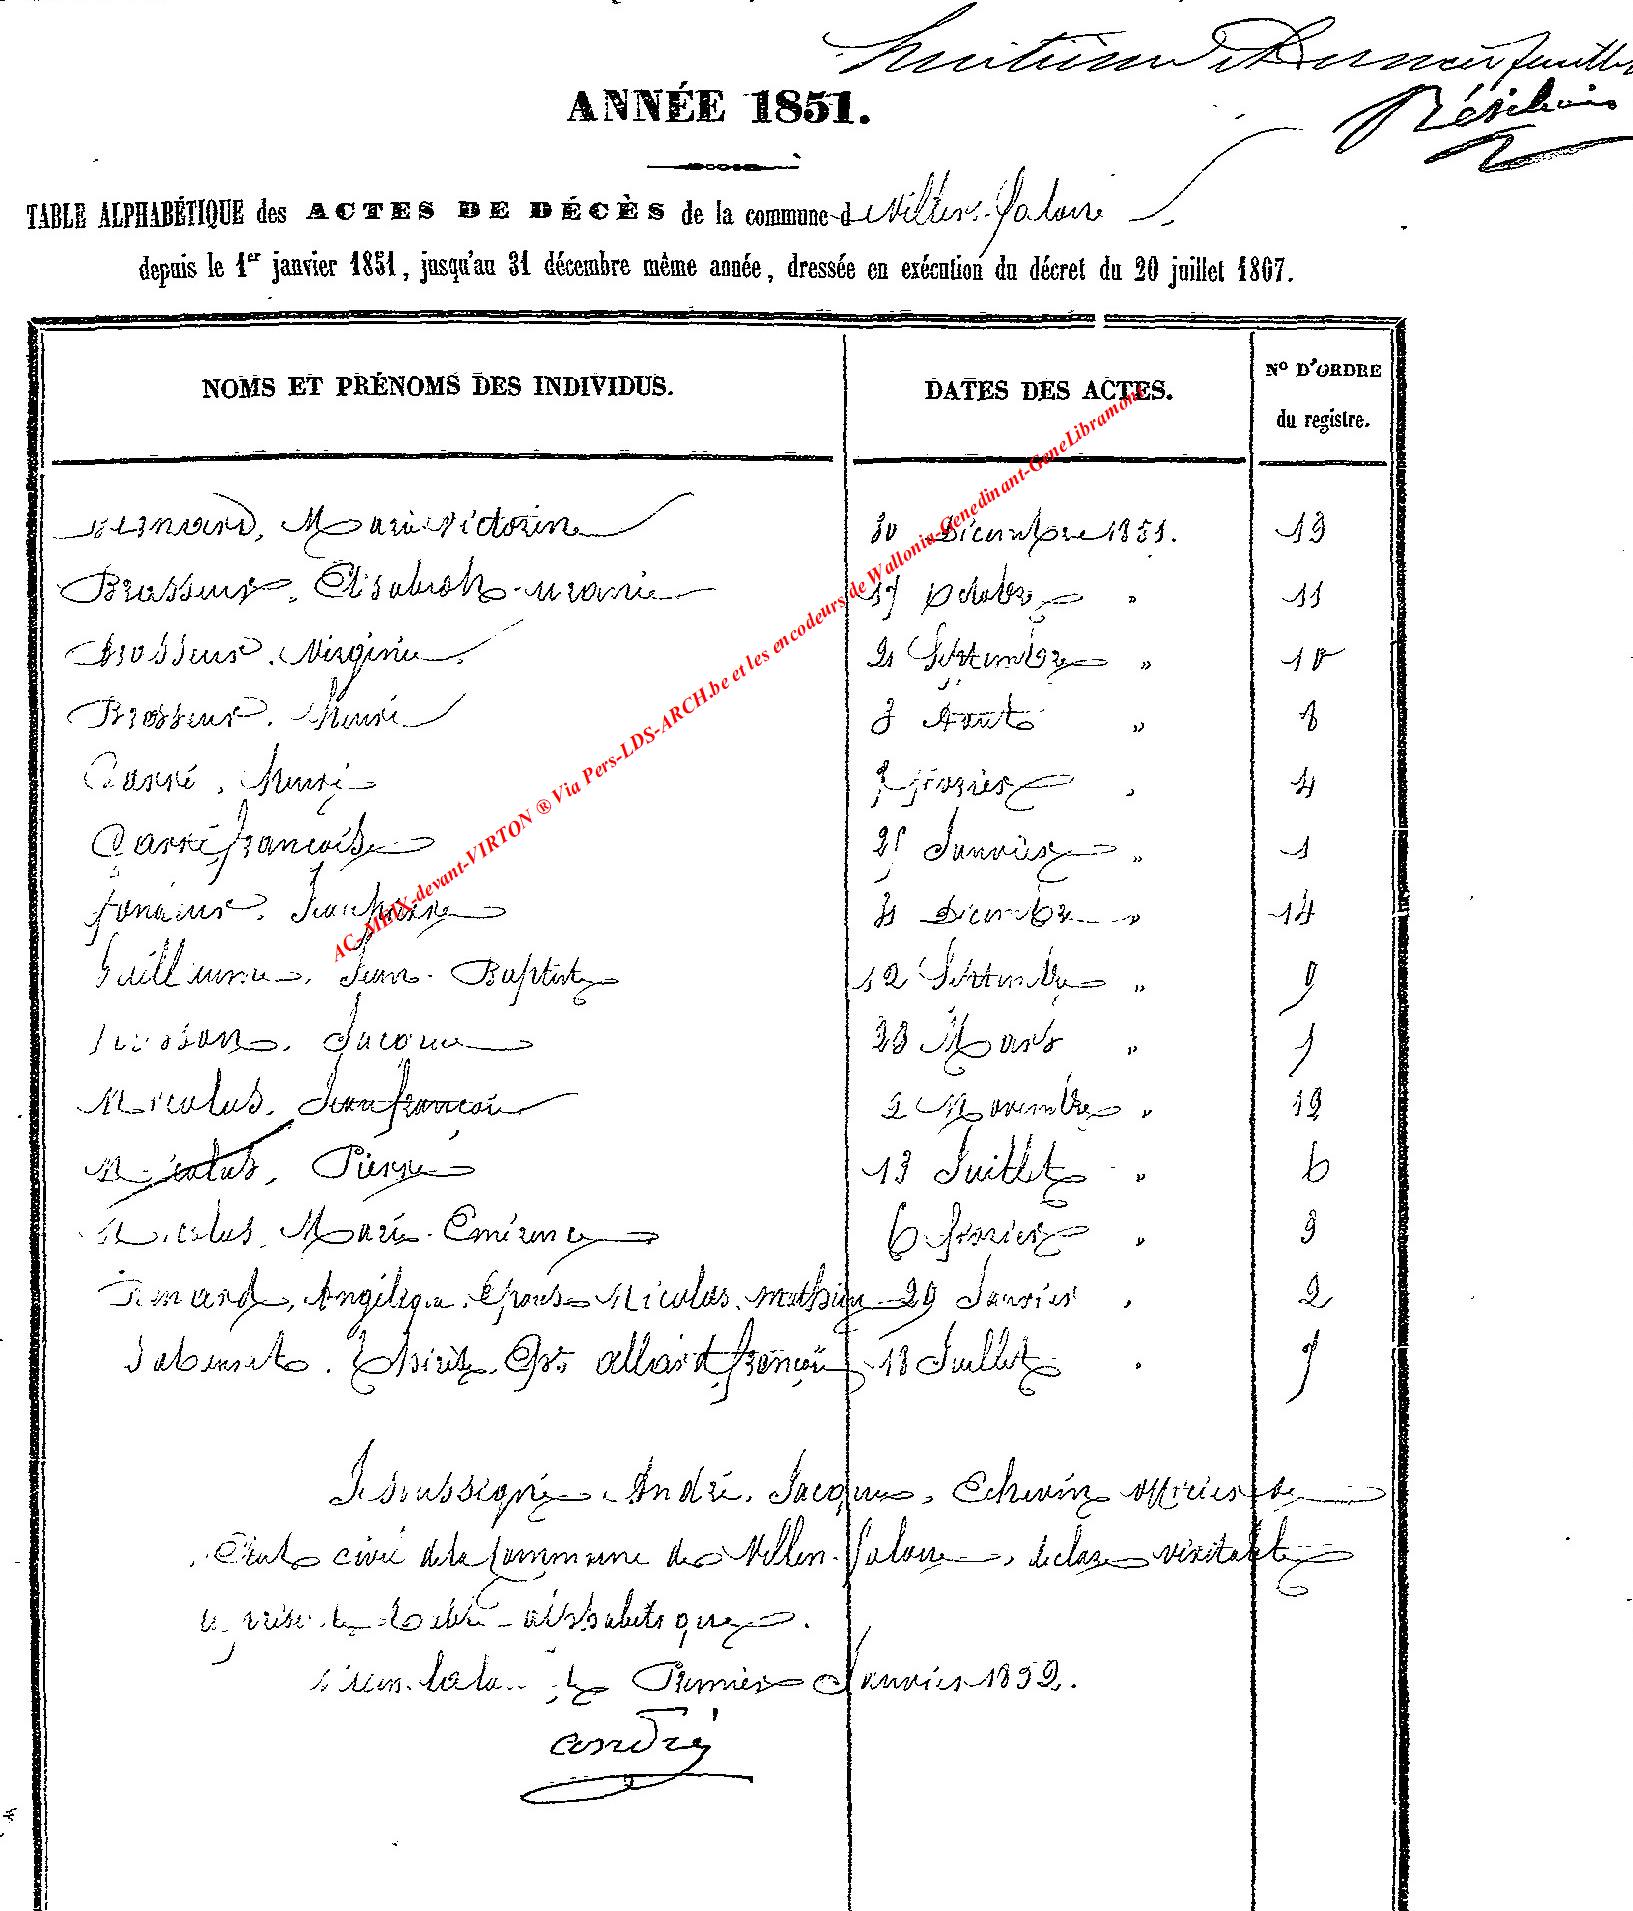 huitième et dernier feuillet
ANNÉE 1851.
TABLE ALPHABÉTIQUE des ACTES DE DÉCÈS de la commune d Villers-
depuis le 1er janvier 1851, jusqu'au 31 décembre même année, dressée en exécution du décret du 20 juillet 1807.
NOMS ET PRÉNOMS DES INDIVIDUS. DATES DES ACTES. No D'ORDRE
du registre.
Bernard, Marie Victorine 30 Décembre 1851. 13
Brasseur, Elisabeth-uranie 17 Octobre " 11
Brasseur. Virginie. 21 Septembre " 10
Brasseur. Henri 8 Aout " 8
Carré, Henri février " 4
Carré françoise 25 Janvier " 1
Jean Pierre 31 Décembre " 14
Guillaume, Jean-Baptiste 12 Septembre " 9
Jacques 23 Mars "
Nicolas, Jean françois 2 Novembre " 12
Nicolas, Pierre 13 Juillet " 6
Nicolas, Marie-Emérence 6 février " 3
Angélique, Epouse Nicolas mathieu 29 Janvier " 2
Thérèse Ep allard françois 18 Juillet " 7
Je soussigné André, Jacques, Echevin officier de
l'Etat civil de la Commune de Villers- , declare véritable
la table alphabétique.
le Premier Janvier 1852.
andré
AC-MEIX-devant-VIRTON ® Via Pers-LDS-ARCH.be et les encodeurs de Wallonia-Genedinant-GeneLibramont